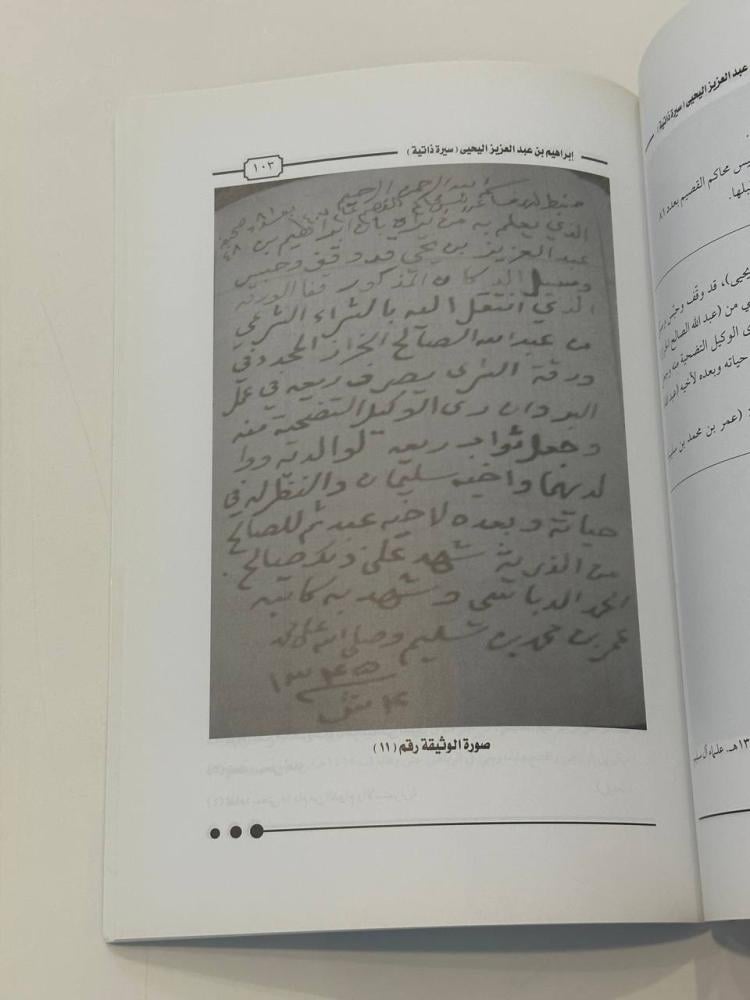 إبراهيم بن عبد العزيز اليحيى (سيرة ذاتية)
١٠٣
الله الرحمن الرحيم
الذي يعلم به من يراه بأن ابراهيم بن
عبد العزيز بن يحيى قد وقف وحبس
وسبل الدكان المذكور قفا الورقة
الذي انتقل اليه بالشراء الشرعي
من عبد الله الصالح الخراز المحدود في
ورقة الشرى يصرف ريعه في عمل
البر وان رى الوكيل التضحية منه
وجعل ثواب ريعه لوالديه ووا
لديهما واخيه سليمان والنظر له في
حياته وبعده لاخيه عبد ثم للصالح
من الذرية شهد على ذلك صالح
الحمد الدباسي وشهد به كاتبه
عمر بن محمد بن سليم وصلى الله على محمد
١٣٤٥
صورة الوثيقة رقم (١١)
عبد العزيز اليحيى (سيرة ذاتية)
يس محاكم القصيم بعدد ٨١
بلها.
يحيى)، قد وقّف وحبّس
ي من (عبد الله الصالح
ى الوكيل التضحية منه
حياته وبعده لأخيه (عبد الله
(عمر بن محمد بن سليم
١٣هـ. علماء آل سليم